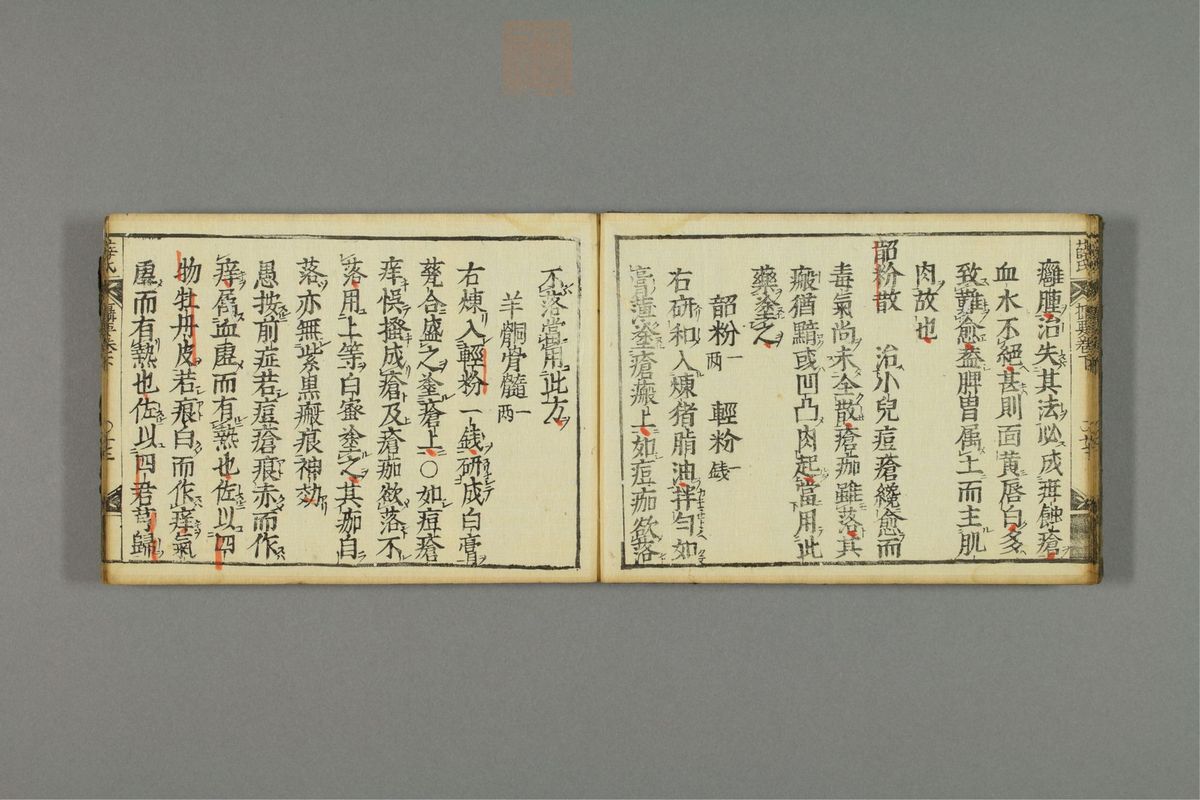 癰腫治失其法必成疳蝕瘡
血水不絕甚則面黃唇白多
致難愈盖脾胃属土而主肌
肉故也
韶粉散　治小兒痘瘡纔愈而
毒氣尚未全散瘡痂雖落其
瘢猶黯或凹凸肉起當用此
藥塗之
韶粉一兩　輕粉一錢
右研和入煉猪脂油拌勻如
膏薄塗瘡瘢上如痘痂欲落
不落當用此方
羊䯒骨髓一兩
右煉入輕粉一錢研成白膏
凳合盛之塗瘡上〇如痘瘡
痒悞搔成瘡及瘡痂欲落不
落用上等白蜜塗之其痂自
落亦無紫黒瘢痕神効
愚按前症若痘瘡痕赤而作
痒屬血虛而有熱也佐以四
物牡丹皮若痕白而作痒氣
虛而有熱也佐以四君芎歸